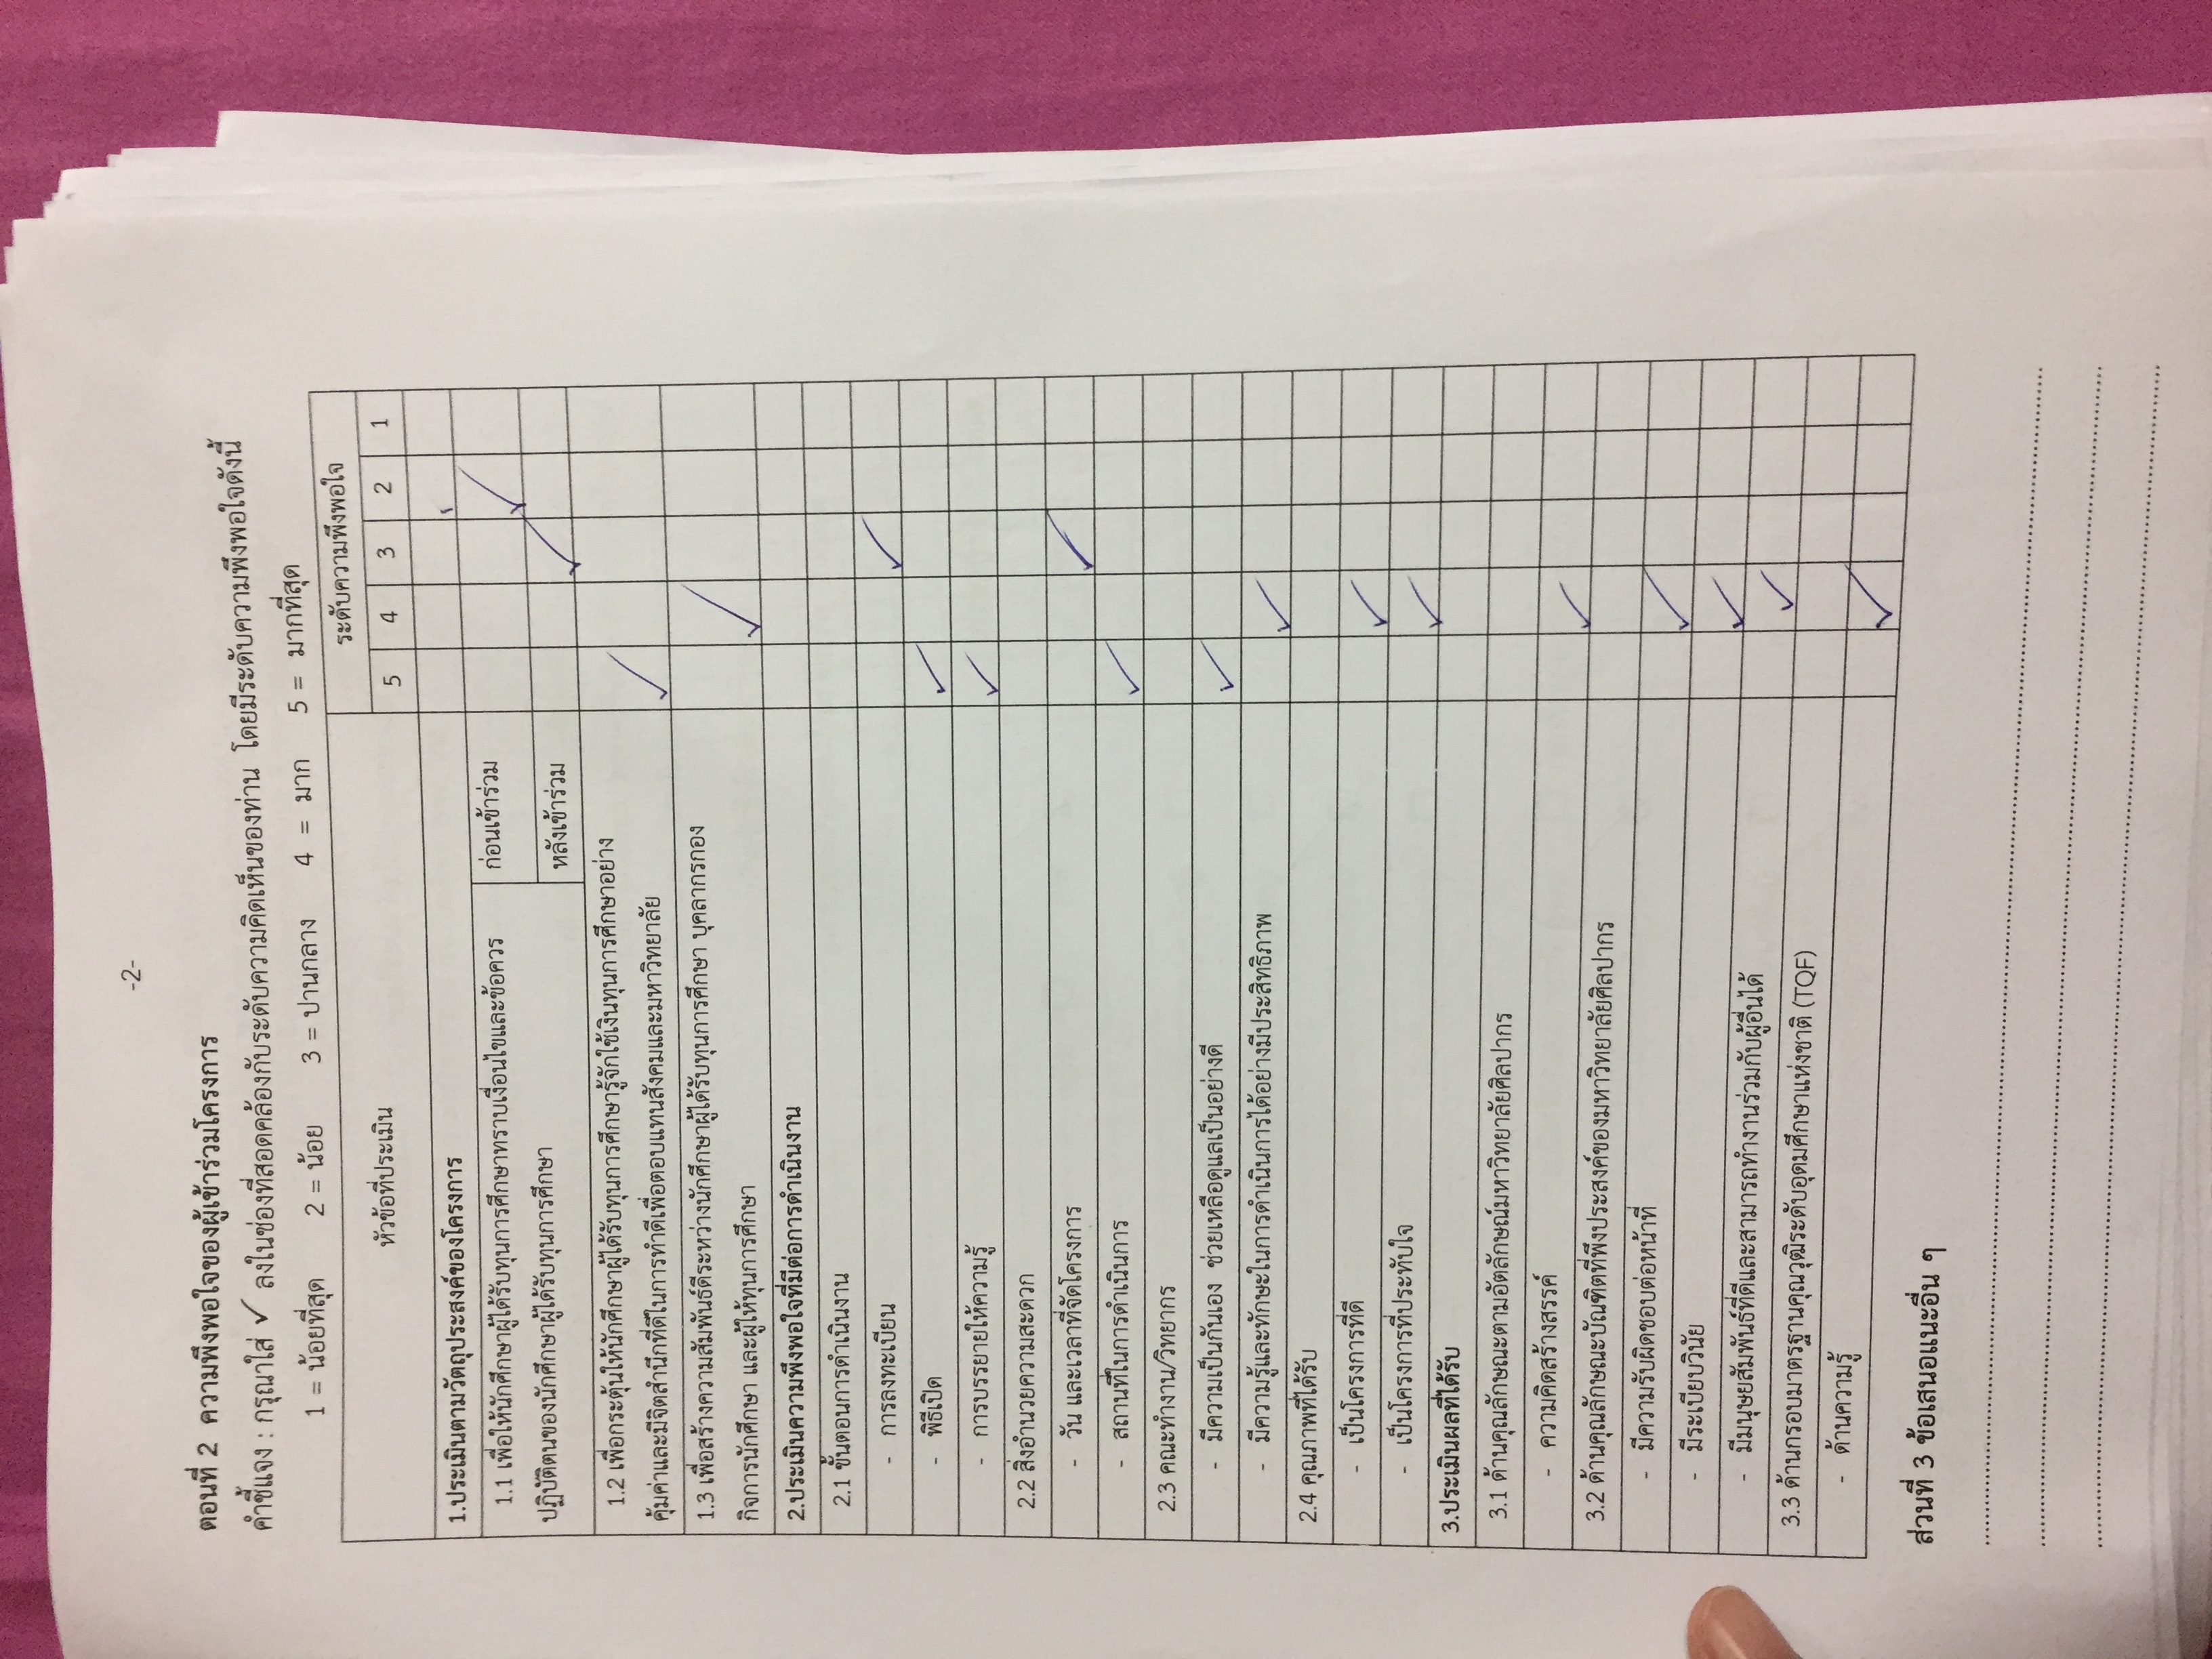 -2-
ตอนที่ 2 ความพึงพอใจของผู้เข้าร่วมโครงการ
คำชี้แจง : กรุณาใส่ ✓ ลงในช่องที่สอดคล้องกับระดับความคิดเห็นของท่าน โดยมีระดับความพึงพอใจดังนี้
1 = น้อยที่สุด 2 = น้อย 3 = ปานกลาง 4 = มาก 5 = มากที่สุด
หัวข้อที่ประเมิน ระดับความพึงพอใจ
5 4 3 2 1
1.ประเมินตามวัตถุประสงค์ของโครงการ
1.1 เพื่อให้นักศึกษาผู้ได้รับทุนการศึกษาทราบเงื่อนไขและข้อควร ก่อนเข้าร่วม ✓
ปฏิบัติตนของนักศึกษาผู้ได้รับทุนการศึกษา หลังเข้าร่วม ✓
1.2 เพื่อกระตุ้นให้นักศึกษาผู้ได้รับทุนการศึกษารู้จักใช้เงินทุนการศึกษาอย่าง
คุ้มค่าและมีจิตสำนึกที่ดีในการทำดีเพื่อตอบแทนสังคมและมหาวิทยาลัย ✓
1.3 เพื่อสร้างความสัมพันธ์ดีระหว่างนักศึกษาผู้ได้รับทุนการศึกษา บุคลากรกอง
กิจการนักศึกษา และผู้ให้ทุนการศึกษา ✓
2.ประเมินความพึงพอใจที่มีต่อการดำเนินงาน
2.1 ขั้นตอนการดำเนินงาน
- การลงทะเบียน ✓
- พิธีเปิด ✓
- การบรรยายให้ความรู้ ✓
2.2 สิ่งอำนวยความสะดวก
- วัน และเวลาที่จัดโครงการ ✓
- สถานที่ในการดำเนินการ ✓
2.3 คณะทำงาน/วิทยากร
- มีความเป็นกันเอง ช่วยเหลือดูแลเป็นอย่างดี ✓
- มีความรู้และทักษะในการดำเนินการได้อย่างมีประสิทธิภาพ ✓
2.4 คุณภาพที่ได้รับ
- เป็นโครงการที่ดี ✓
- เป็นโครงการที่ประทับใจ ✓
3.ประเมินผลที่ได้รับ
3.1 ด้านคุณลักษณะตามอัตลักษณ์มหาวิทยาลัยศิลปากร
- ความคิดสร้างสรรค์ ✓
3.2 ด้านคุณลักษณะบัณฑิตที่พึงประสงค์ของมหาวิทยาลัยศิลปากร
- มีความรับผิดชอบต่อหน้าที่ ✓
- มีระเบียบวินัย ✓
- มีมนุษยสัมพันธ์ที่ดีและสามารถทำงานร่วมกับผู้อื่นได้ ✓
3.3 ด้านกรอบมาตรฐานคุณวุฒิระดับอุดมศึกษาแห่งชาติ (TQF)
- ด้านความรู้ ✓
ส่วนที่ 3 ข้อเสนอแนะอื่น ๆ